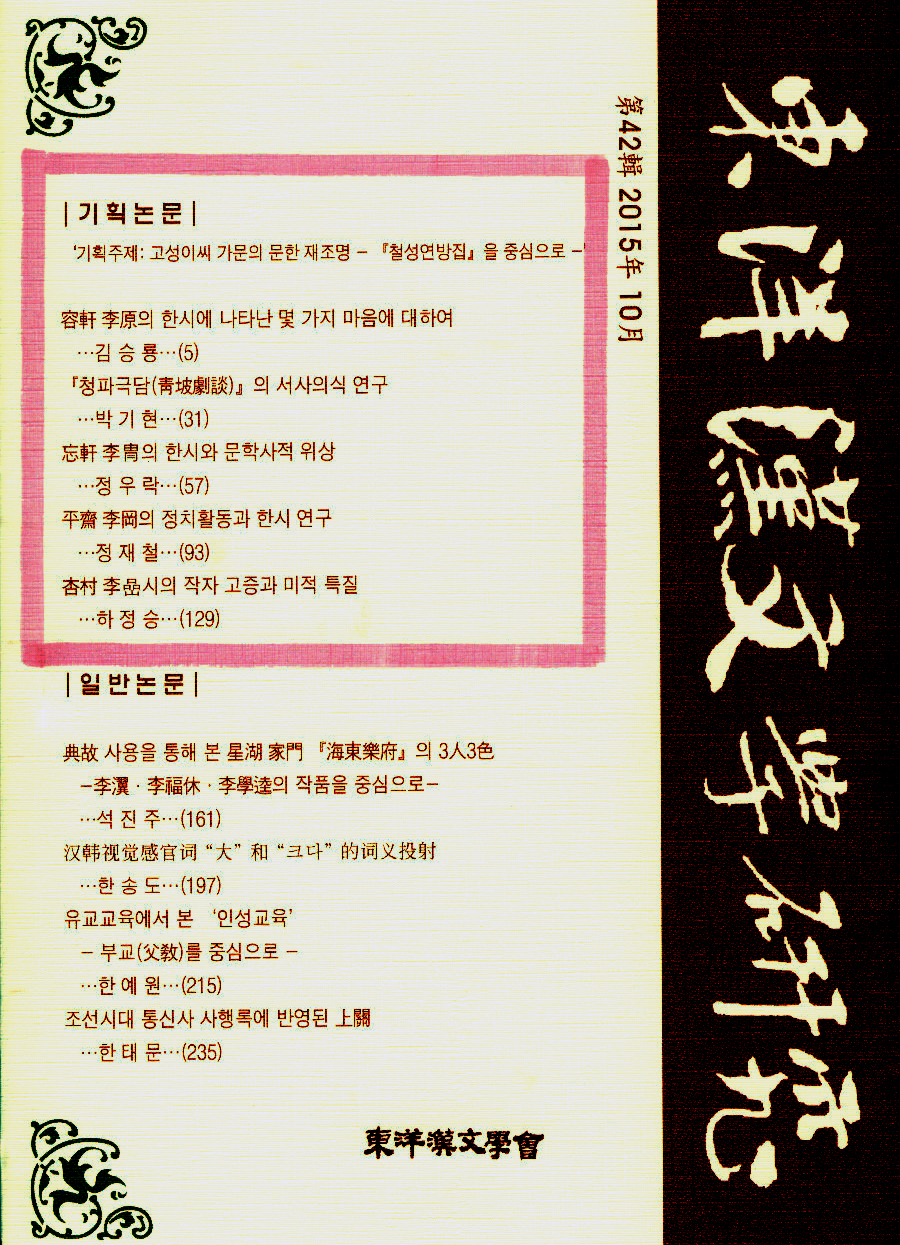 第42輯 2015年 10月
東洋漢文學硏究
|기획논문|
'기획주제: 고성이씨 가문의 문한 재조명 - 『철성연방집』을 중심으로 -'
容軒 李原의 한시에 나타난 몇 가지 마음에 대하여
…김 승 룡…(5)
『청파극담(靑坡劇談)』의 서사의식 연구
…박 기 현…(31)
忘軒 李胄의 한시와 문학사적 위상
…정 우 락…(57)
平齋 李岡의 정치활동과 한시 연구
…정 재 철…(93)
杏村 李嵒시의 작자 고증과 미적 특질
…하 정 승…(129)
|일반논문|
典故 사용을 통해 본 星湖 家門 『海東樂府』의 3人3色
-李瀷·李福休·李學逵의 작품을 중심으로-
…석 진 주…(161)
汉韩视觉感官词 “大” 和 “크다” 的词义投射
…한 송 도…(197)
유교교육에서 본 ‘인성교육’
- 부교(父敎)를 중심으로 -
…한 예 원…(215)
조선시대 통신사 사행록에 반영된 上關
…한 태 문…(235)
東洋漢文學會